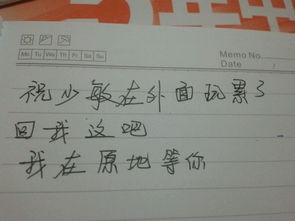 Memo No.
Mo Tu We Th Fr Sa Su
Date /
祝少敏在外面玩累了
回我这吧
我在原地等你